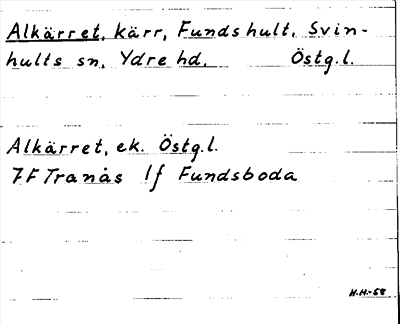 Alkärret, kärr, Fundshult, Svin-
hults sn, Ydre hd. Östg.l.
Alkärret, ek. Östg.l.
7F Tranås 1f Fundsboda
H.H.-58